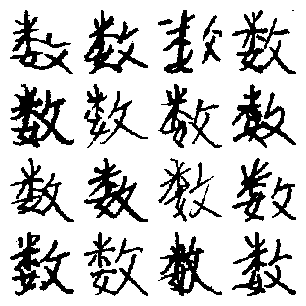 数数数数
数数数数
数数数数
数数数数